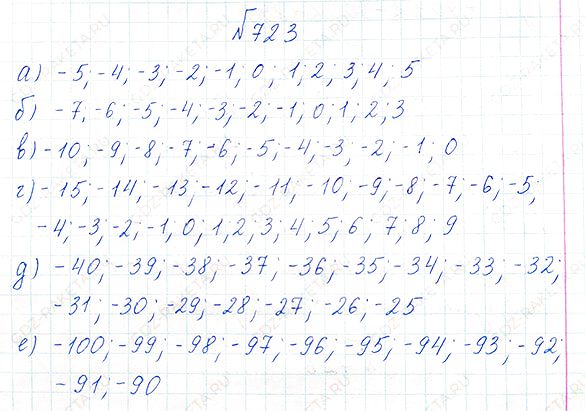 №723
а) -5; -4; -3; -2; -1; 0; 1; 2; 3; 4; 5
б) -7; -6; -5; -4; -3; -2; -1; 0; 1; 2; 3
в) -10; -9; -8; -7; -6; -5; -4; -3; -2; -1; 0
г) -15; -14; -13; -12; -11; -10; -9; -8; -7; -6; -5;
-4; -3; -2; -1; 0; 1; 2; 3; 4; 5; 6; 7; 8; 9
д) -40; -39; -38; -37; -36; -35; -34; -33; -32;
-31; -30; -29; -28; -27; -26; -25
е) -100; -99; -98; -97; -96; -95; -94; -93; -92;
-91; -90